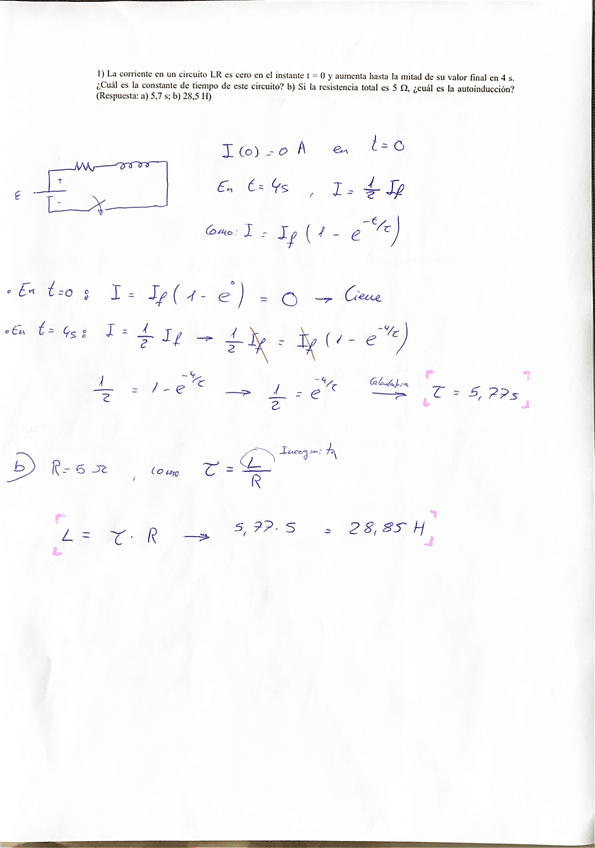 1) La corriente en un circuito LR es cero en el instante t = 0 y aumenta hasta la mitad de su valor final en 4 s.
¿Cuál es la constante de tiempo de este circuito? b) Si la resistencia total es 5 Ω, ¿cuál es la autoinducción?
(Respuesta: a) 5,7 s; b) 28,5 H)
I(0) = 0 A en t = 0
ε + -
En t = 4s , I = 1/2 If
Como: I = If (1 - e^(-t/τ))
• En t=0 : I = If (1 - e^0) = 0 → Ciene
• En t = 4s : I = 1/2 If → 1/2 If = If (1 - e^(-4/τ))
1/2 = 1 - e^(-4/τ) → 1/2 = e^(-4/τ) Calculadora → τ = 5,77s
b) R = 5 Ω , como τ = L/R Incognita
L = τ · R → 5,77 · 5 = 28,85 H